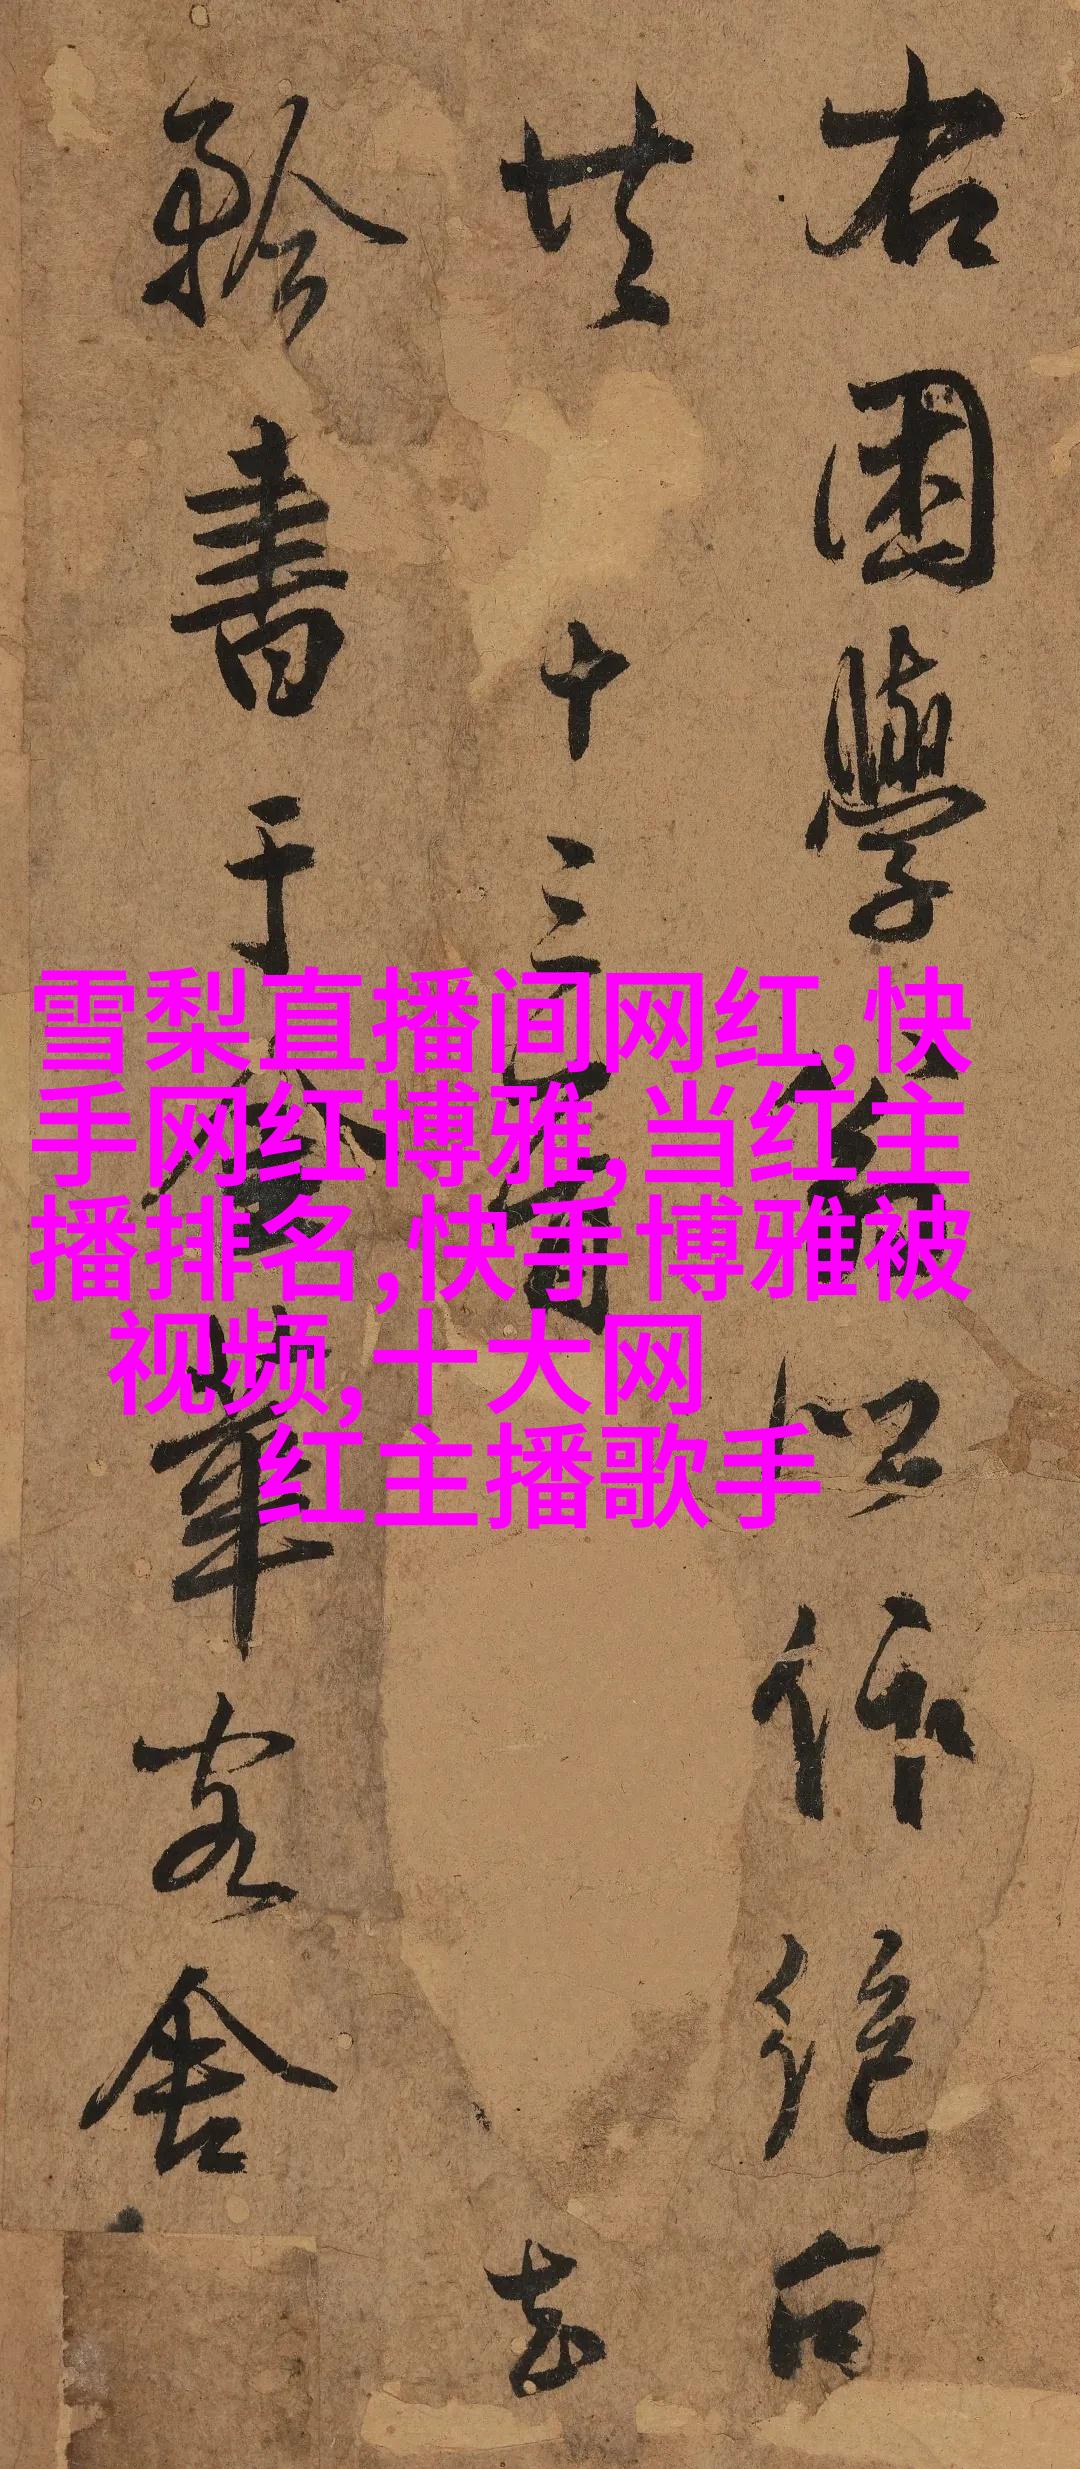 右困學作絕句
共十三首
書于金華客舍
雪梨直播间网红,快
手网红博雅,当红主
播排名,快手博雅被
视频,十大网
红主播歌手